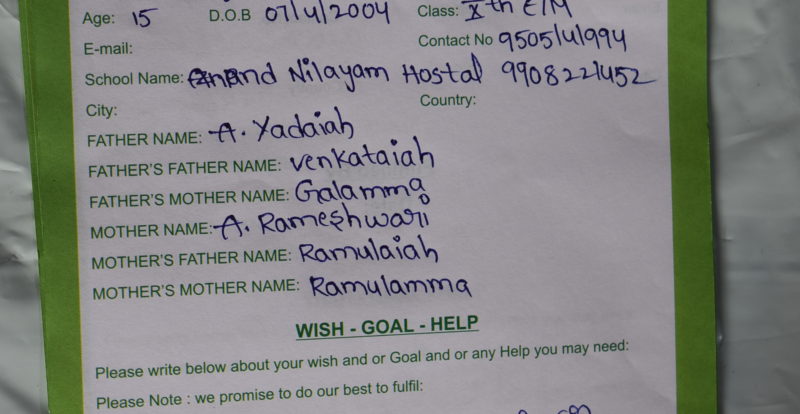 Age: 15 D.O.B 07/4/2004 Class: Xth E/M
E-mail: Contact No 9505141994
School Name: Anand Nilayam Hostal 9908221452
City: Country:
FATHER NAME: A. Yadaiah
FATHER'S FATHER NAME: Venkataiah
FATHER'S MOTHER NAME: Galamma
MOTHER NAME: A. Rameshwari
MOTHER'S FATHER NAME: Ramulaiah
MOTHER'S MOTHER NAME: Ramulamma
WISH - GOAL - HELP
Please write below about your wish and or Goal and or any Help you may need:
Please Note : we promise to do our best to fulfil: